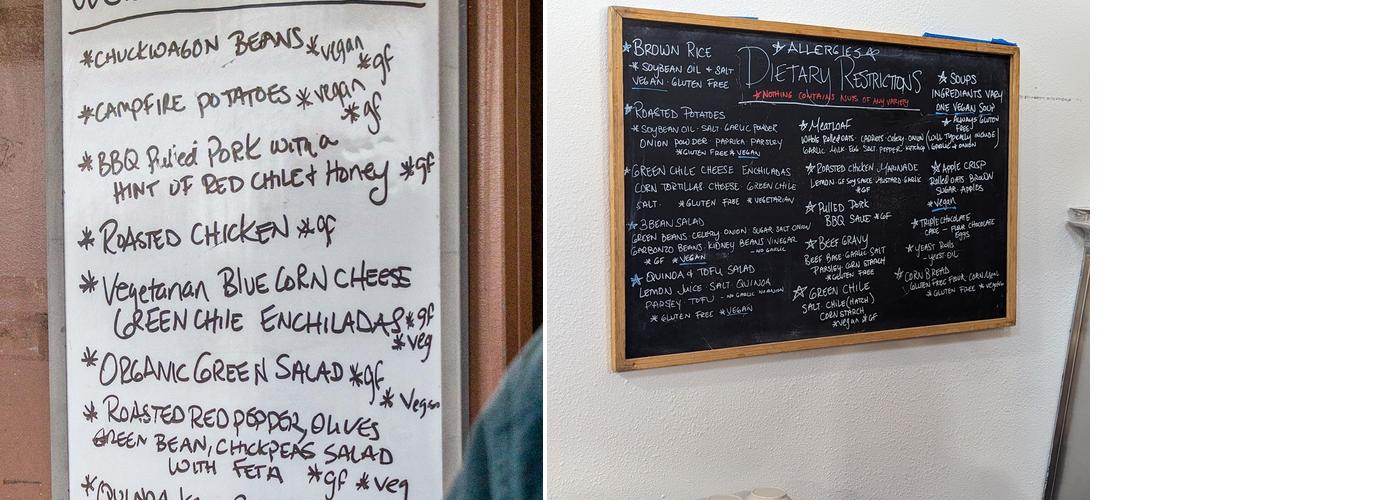 *CHUCKWAGON BEANS *vegan *gf
*CAMPFIRE POTATOES *vegan *gf
*BBQ Pulled PORK with a
HINT OF RED CHILE & Honey *gf
*ROASTED CHICKEN *gf
*Vegetarian BLUE CORN CHEESE
GREEN CHILE ENCHILADAS *gf
*veg
*ORGANIC GREEN SALAD *gf
*Vegan
*ROASTED RED PEPPER, OLIVES
GREEN BEAN, CHICKPEAS SALAD
WITH FETA *gf *veg
*ALLERGIES*
DIETARY RESTRICTIONS
*NOTHING CONTAINS NUTS OF ANY VARIETY
*BROWN RICE
*SOYBEAN OIL & SALT
VEGAN · GLUTEN FREE
*ROASTED POTATOES
*SOYBEAN OIL · SALT · GARLIC POWDER
ONION POWDER PAPRIKA PARSLEY
*GLUTEN FREE *VEGAN
*GREEN CHILE CHEESE ENCHILADAS
CORN TORTILLAS CHEESE GREEN CHILE
SALT · *GLUTEN FREE *VEGETARIAN
*3 BEAN SALAD
GREEN BEANS CELERY ONION SUGAR SALT ONION
GARBONZO BEANS · KIDNEY BEANS VINEGAR
*GF *VEGAN - NO GARLIC
*QUINOA & TOFU SALAD
LEMON JUICE SALT QUINOA
PARSLEY · TOFU - NO GARLIC NO ONION
*GLUTEN FREE *VEGAN
*MEATLOAF
WHOLE Rolled OATS · CARROTS · CELERY · ONION
GARLIC MILK EGG SALT PEPPER KETCHUP
*ROASTED CHICKEN MARINADE
LEMON · GF SOY SAUCE · MUSTARD · GARLIC
*GF
*PULLED PORK
BBQ SAUCE *GF
*BEEF GRAVY
BEEF BASE GARLIC SALT
PARSLEY CORN STARCH
*GLUTEN FREE
*GREEN CHILE
SALT · CHILE (HATCH)
CORN STARCH
*vegan *GF
*SOUPS
INGREDIANTS VARY
ONE VEGAN SOUP
*ALWAYS GLUTEN
FREE
(WILL TYPICALLY INCLUDE
GARLIC & ONION)
*APPLE CRISP
Rolled OATS · BROWN
SUGAR · APPLES
*vegan
*TRIPLE CHOCOLATE
CAKE - FLOUR CHOCOLATE
EGGS
*YEAST Rolls
- YEAST OIL
*CORN BREAD
GLUTEN FREE FLOUR CORN MEAL
*GLUTEN FREE